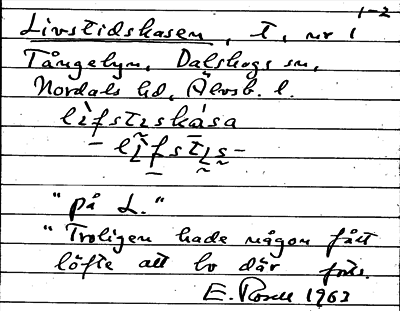 1-2
Livstidskasen, t, nr 1
Tångelyn, Dalskogs sn,
Nordals hd, Älvsb. l.
lìfstɪskása
- lĩfstɪs-
"på L."
"Troligen hade någon fått
löfte att bo där förts.
E. Rosell 1963